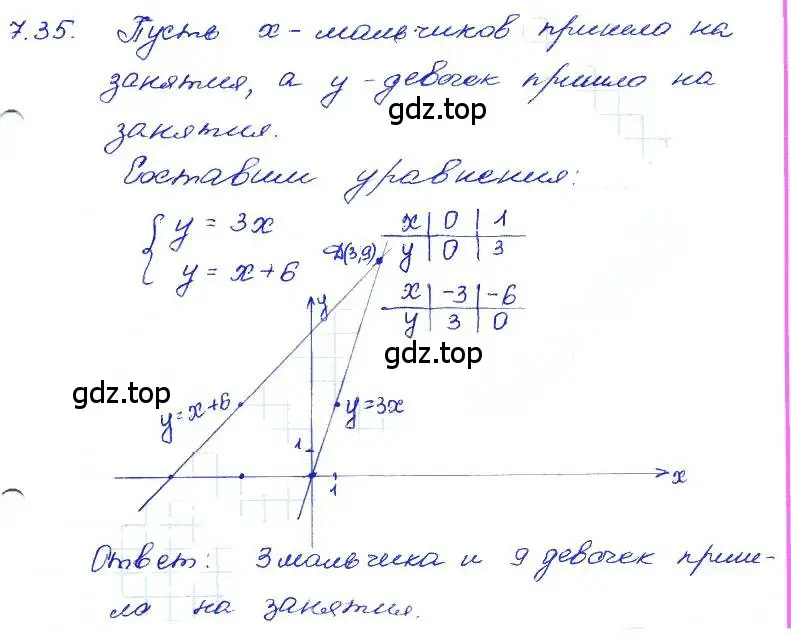 7.35. Пусть x - мальчиков пришло на
занятия, а y - девочек пришло на
gdz.top
занятия.
Составим уравнения:
{ y = 3x
y = x+6
x | 0 | 1
y | 0 | 3
A(3,9)
x | -3 | -6
y | 3 | 0
y
gdz.top
gdz.top
y = x+6
y = 3x
1
x
1
Ответ: 3 мальчика и 9 девочек приш-
ло на занятия.